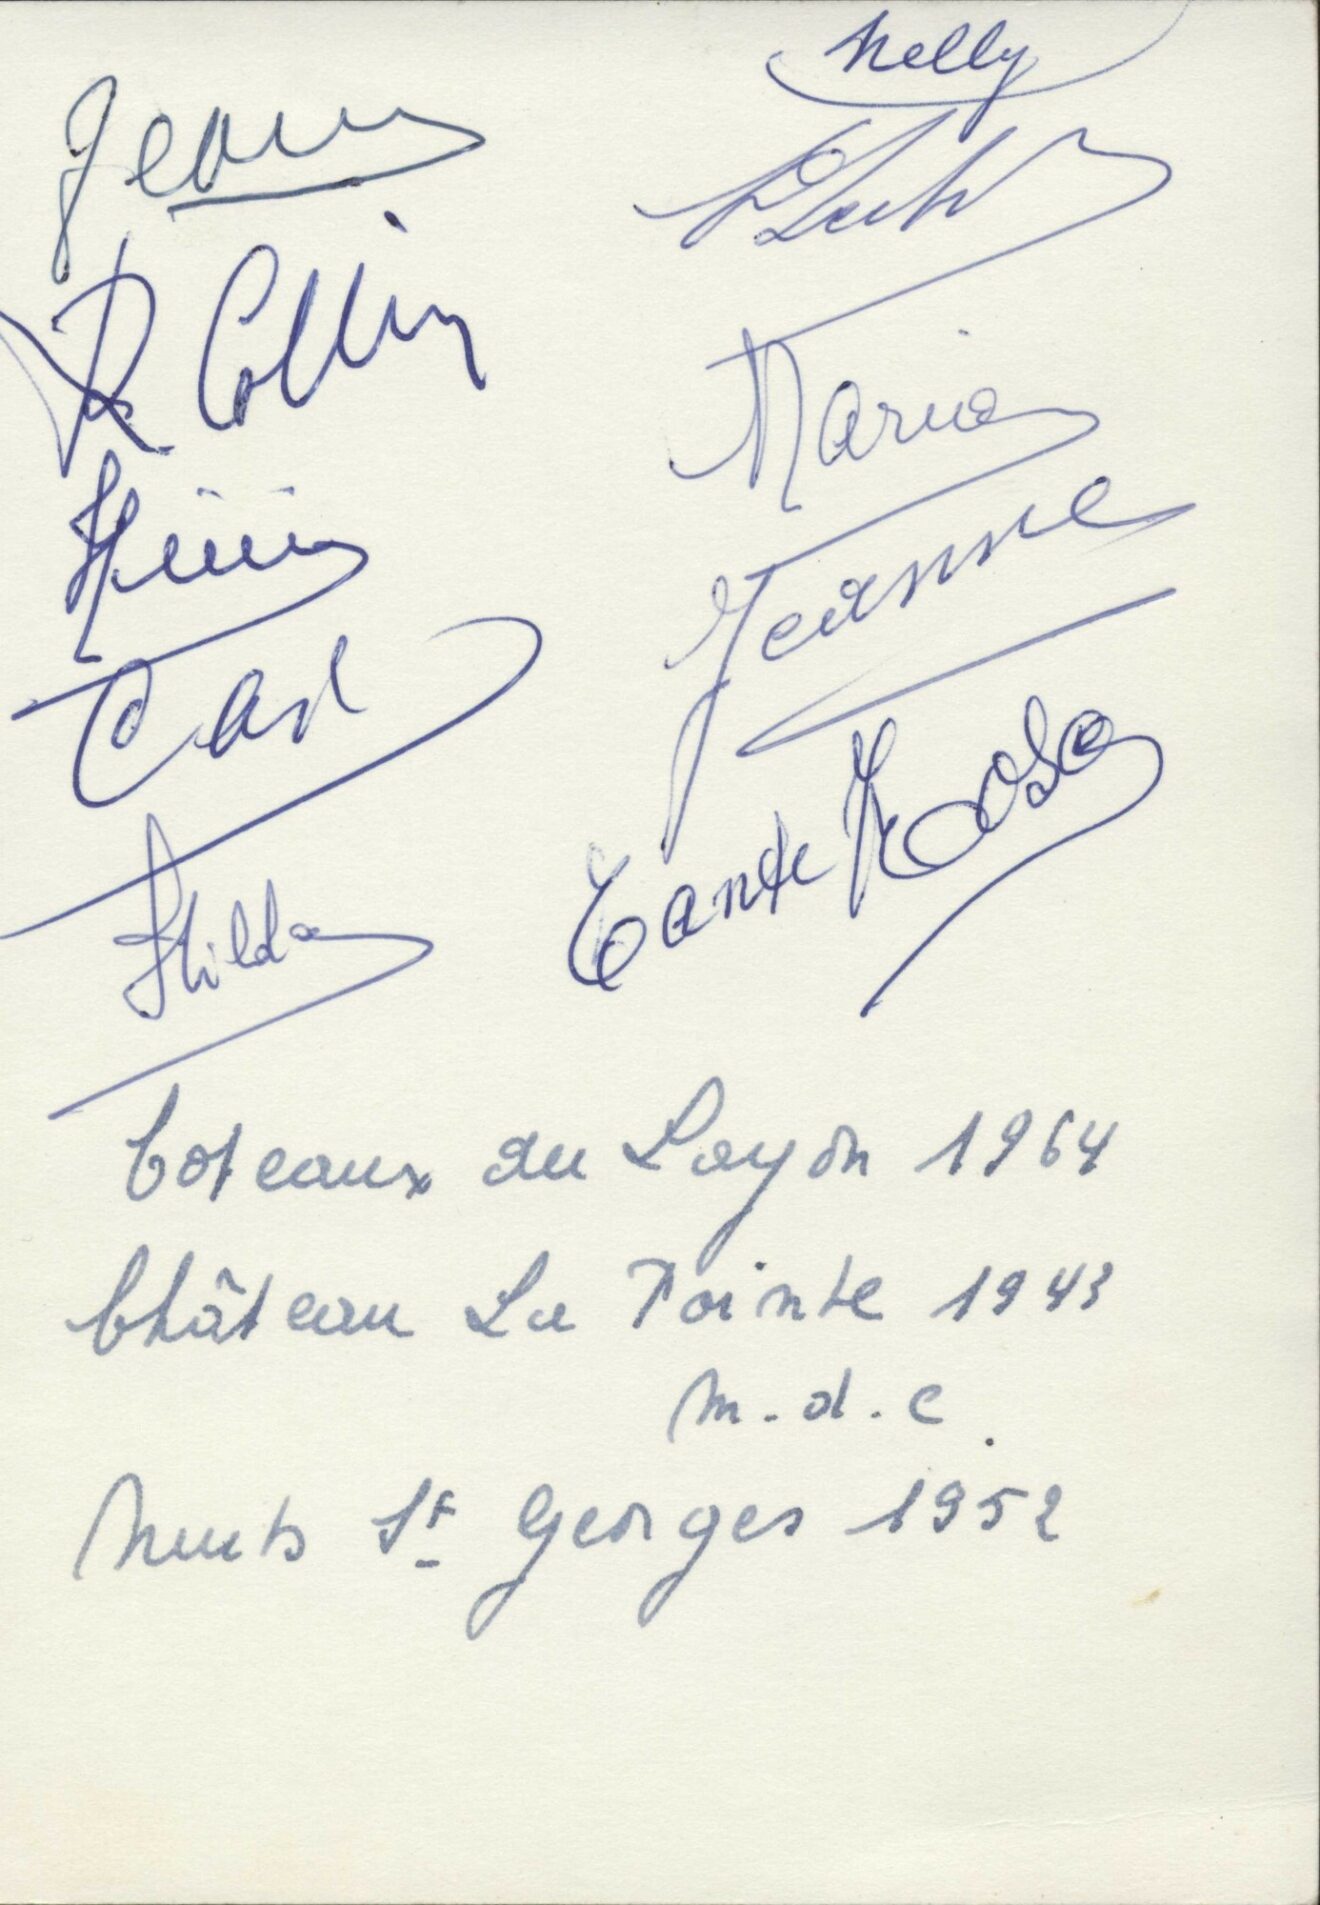 Jean
Nelly
R Collin
Maria
Carl
Jeanne
Hilda
Tante Rosa
Coteaux du Layon 1964
Château La Pointe 1943
m.d.c.
Nuits St Georges 1952